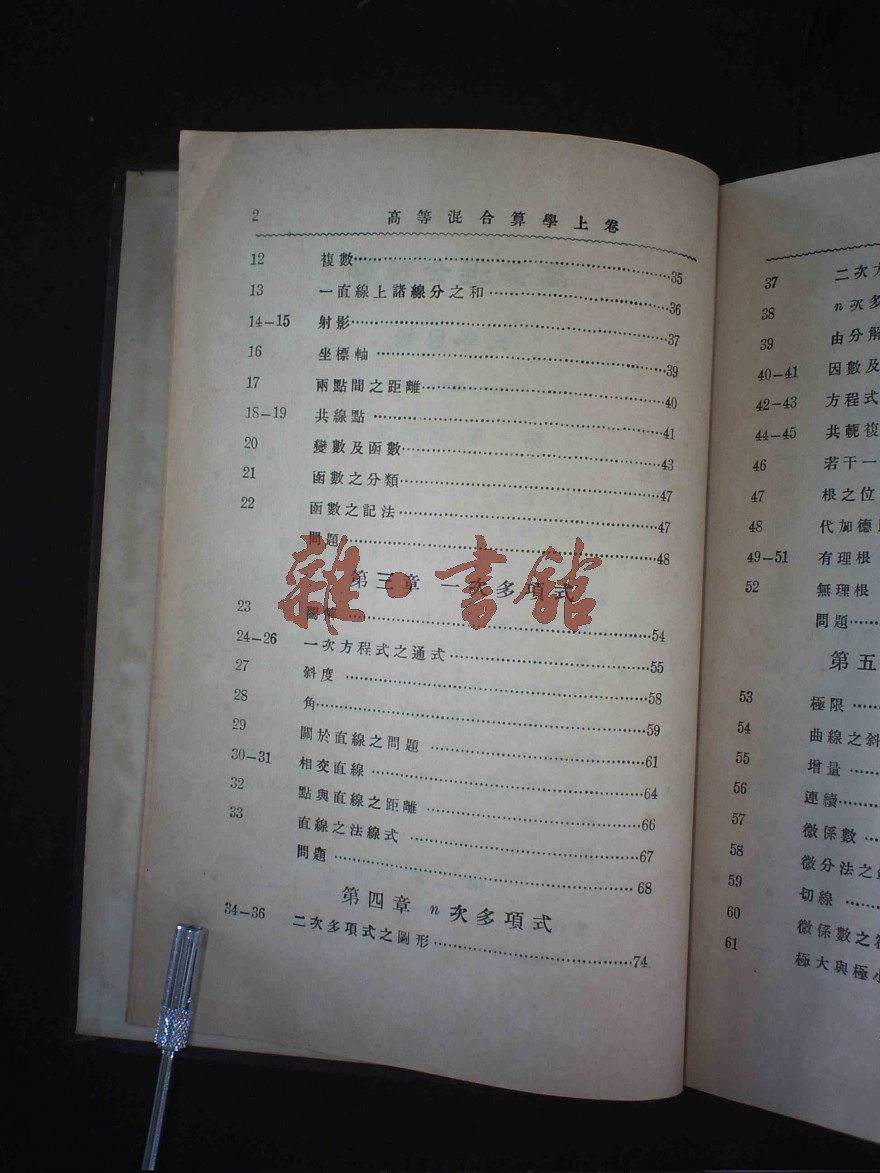 2 高等混合算學上卷
12 複數……35
13 一直線上諸線分之和……36
14—15 射影……37
16 坐標軸……39
17 兩點間之距離……40
18—19 共線點……41
20 變數及函數……43
21 函數之分類……47
22 函數之記法……47
問題……48
雜·書館
第三章 一次多項式
23 圖解……54
24—26 一次方程式之通式……55
27 斜度……58
28 角……59
29 關於直線之問題……61
30—31 相交直線……64
32 點與直線之距離……66
33 直線之法線式……67
問題……68
第四章 n次多項式
34—36 二次多項式之圖形……74
37 二次方
38 n次多
39 由分解
40—41 因數及
42—43 方程式
44—45 共軛複
46 若干一
47 根之位
48 代加德
49—51 有理根
52 無理根
問題……
第五
53 極限……
54 曲線之斜
55 增量……
56 連續……
57 微係數……
58 微分法之
59 切線……
60 微係數之
61 極大與極小